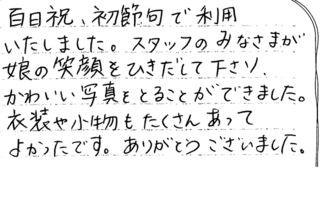 百日祝、初節句で利用
いたしました。スタッフのみなさまが
娘の笑顔をひきだして下さり、
かわいい写真をとることができました。
衣装や小物もたくさんあって
よかったです。ありがとうございました。